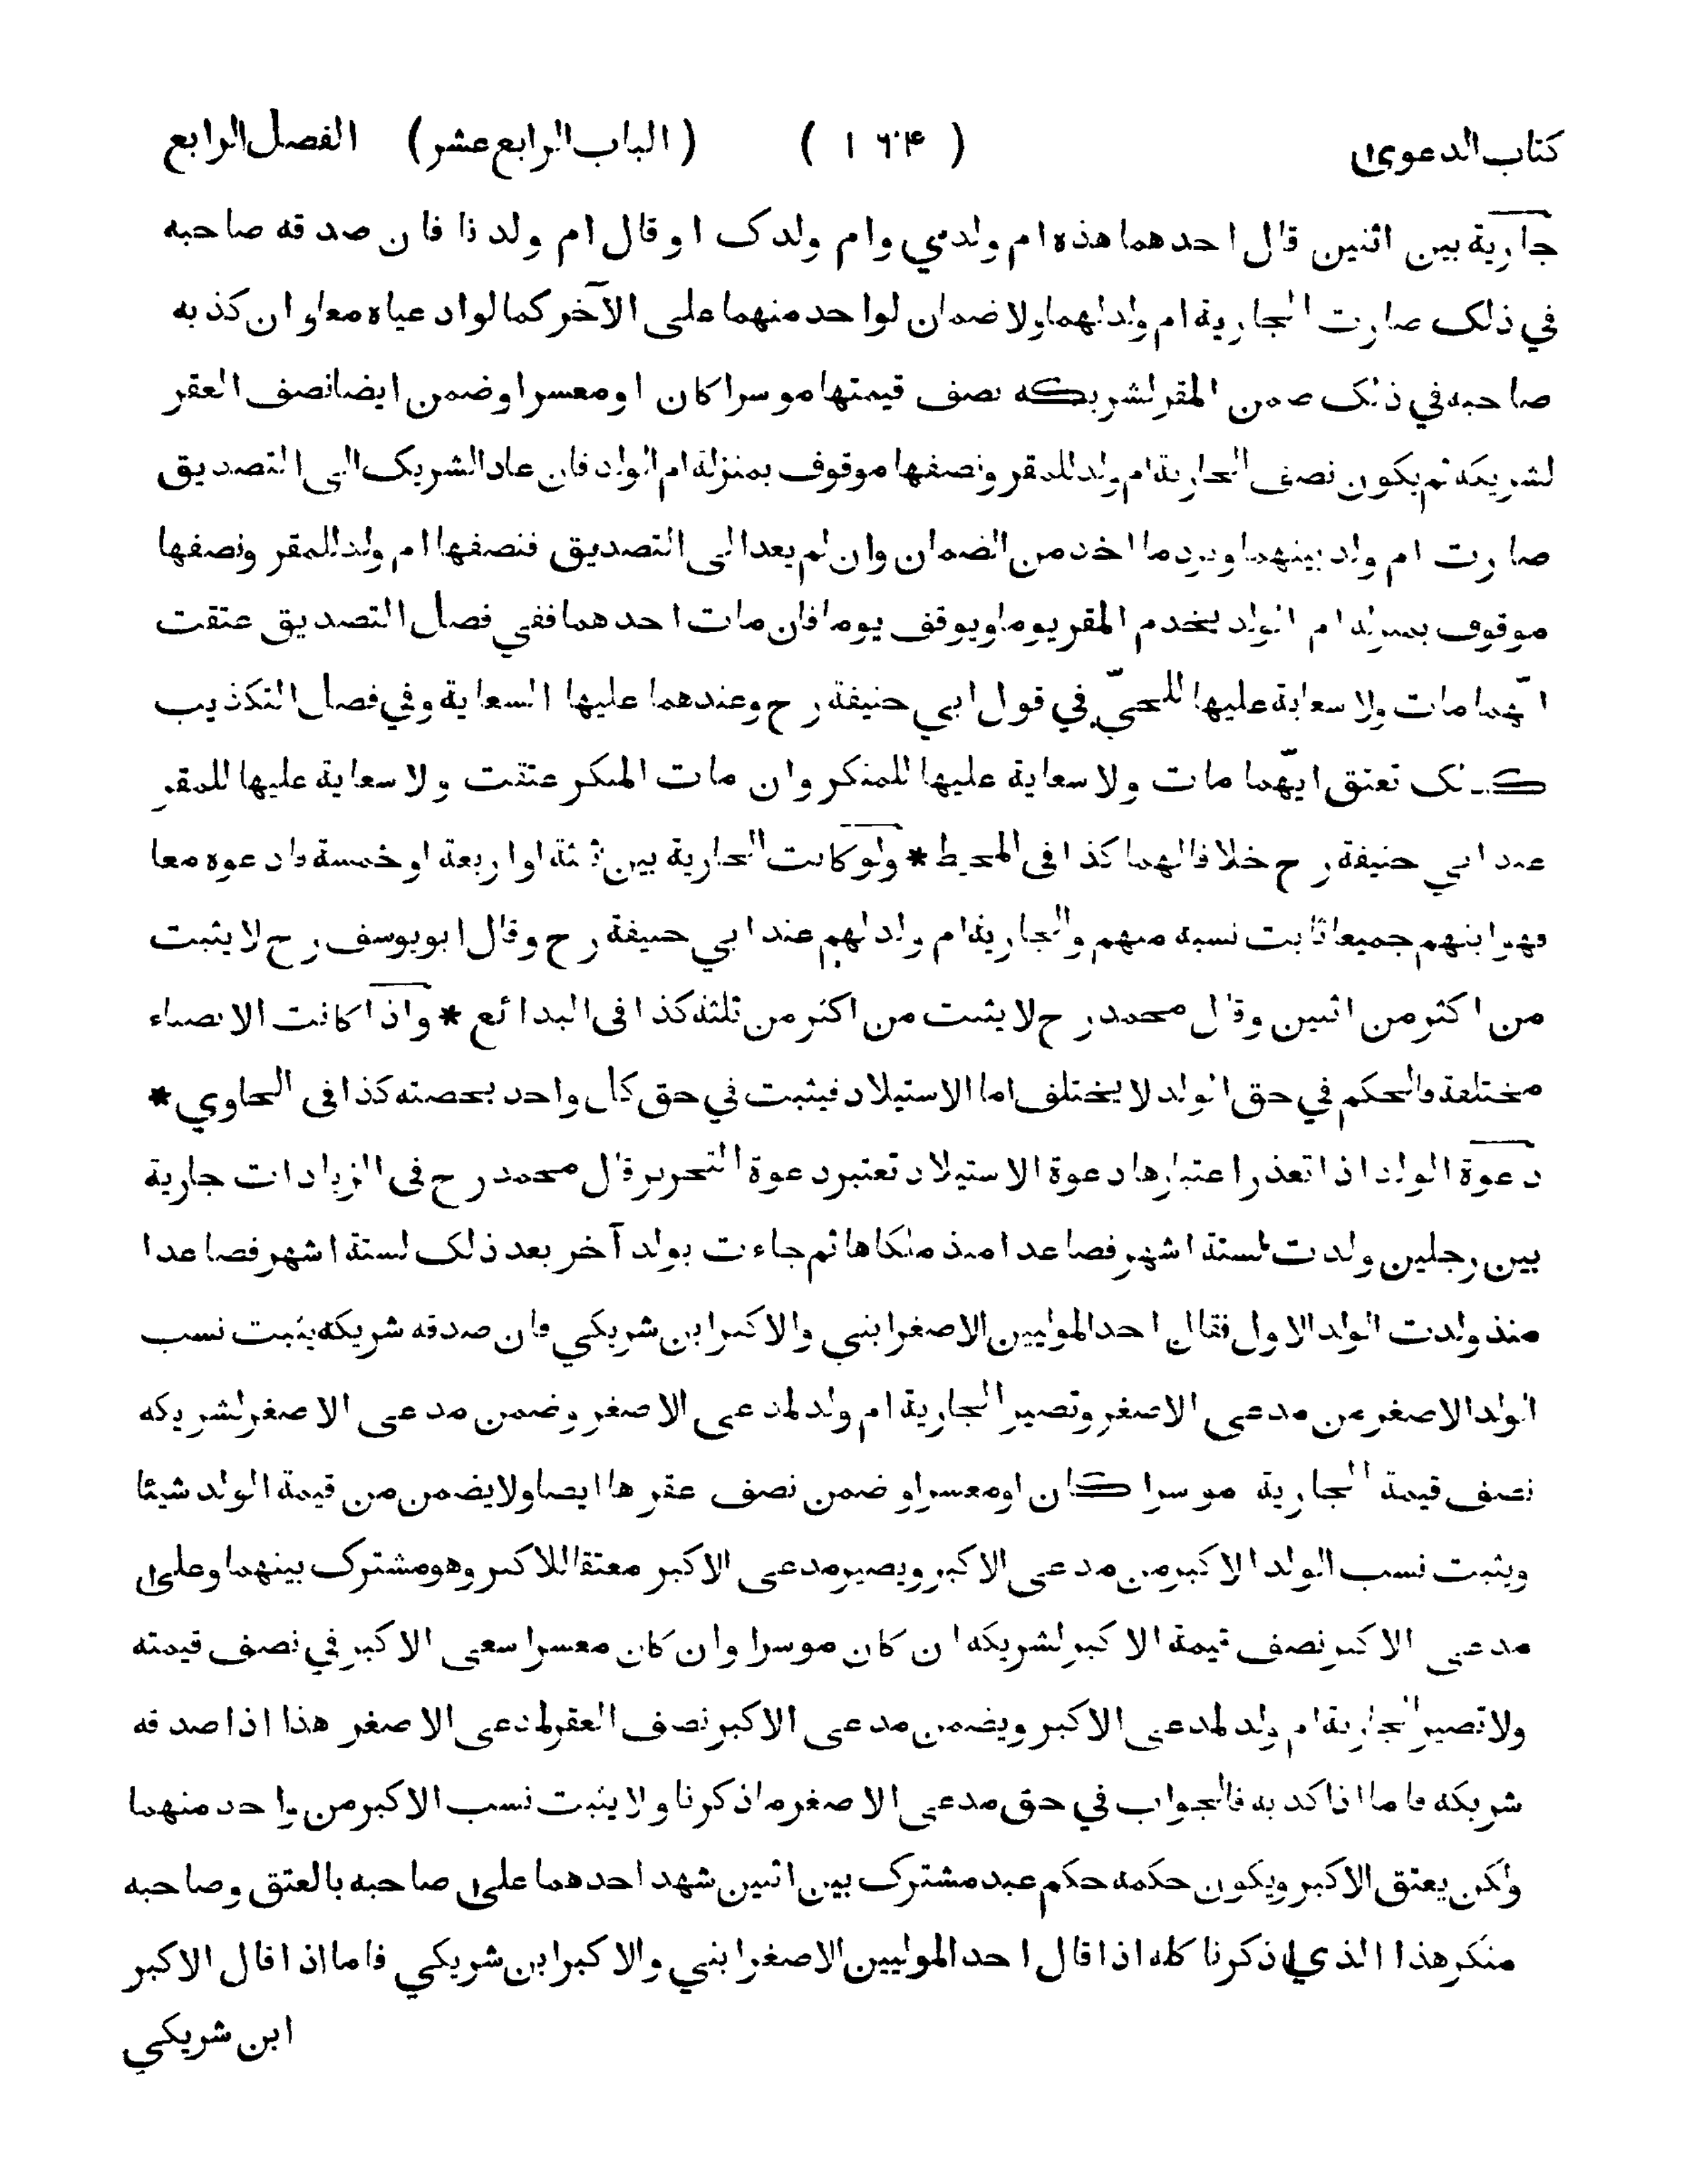 كتاب الدعوى ( ١٦٤ ) ( الباب الرابع عشر ) الفصل الرابع
جارية بين اثنين قال احدهما هذه ام ولدي وام ولدك او قال ام ولدنا فان صدقه صاحبه
في ذلك صارت الجارية ام ولد لهما ولا ضمان لواحد منهما على الآخر كما لو ادعياه معا وان كذبه
صاحبه في ذلك ضمن المقر لشريكه نصف قيمتها موسرا كان او معسرا وضمن ايضا نصف العقر
لشريكه ثم يكون نصف الجارية ام ولد للمقر ونصفها موقوف بمنزلة ام الولد فان عاد الشريك الى التصديق
صارت ام ولد بينهما ويرد ما اخذ من الضمان وان لم يعد الى التصديق فنصفها ام ولد للمقر ونصفها
موقوف بمنزلة ام الولد يخدم المقر يوما ويوقف يوما فان مات احدهما ففي فصل التصديق عتقت
ايّهما مات ولا سعاية عليها للحيّ في قول ابي حنيفة رح وعندهما عليها السعاية وفي فصل التكذيب
كذلك تعتق ايّهما مات ولا سعاية عليها للمنكر وان مات المنكر عتقت ولا سعاية عليها للمقر
عند ابي حنيفة رح خلافا لهما كذا فى المحيط * ولو كانت الجارية بين ثلثة او اربعة او خمسة فادعوه معا
فهو ابنهم جميعا ثابت نسبه منهم والجارية ام ولد لهم عند ابي حنيفة رح وقال ابويوسف رح لا يثبت
من اكثر من اثنين وقال محمد رح لا يثبت من اكثر من ثلثة كذا فى البدائع * واذا كانت الانصباء
مختلفة فالحكم في حق الولد لا يختلف اما الاستيلاد فيثبت في حق كل واحد بحصته كذا فى الحاوي *
دعوة الولد اذا تعذر اعتبارها دعوة الاستيلاد تعتبر دعوة التحرير قال محمد رح فى الزيادات جارية
بين رجلين ولدت لستة اشهر فصاعدا منذ ملكاها ثم جاءت بولد آخر بعد ذلك لستة اشهر فصاعدا
منذ ولدت الولد الاول فقال احد الموليين الاصغر ابني والاكبر ابن شريكي فان صدقه شريكه يثبت نسب
الولد الاصغر من مدعى الاصغر وتصير الجارية ام ولد لمدعى الاصغر وضمن مدعى الاصغر لشريكه
نصف قيمة الجارية موسرا كان او معسرا و ضمن نصف عقرها ايضا ولا يضمن من قيمة الولد شيئا
ويثبت نسب الولد الاكبر من مدعى الاكبر ويصير مدعى الاكبر معتقا للاكبر وهو مشترك بينهما وعلى
مدعى الاكبر نصف قيمة الاكبر لشريكه ان كان موسرا وان كان معسرا سعى الاكبر في نصف قيمته
ولا تصير الجارية ام ولد لمدعى الاكبر ويضمن مدعى الاكبر نصف العقر لمدعى الاصغر هذا اذا صدقه
شريكه فاما اذا كذبه فالجواب في حق مدعى الاصغر ما ذكرنا ولا يثبت نسب الاكبر من واحد منهما
ولكن يعتق الاكبر ويكون حكمه حكم عبد مشترك بين اثنين شهد احدهما على صاحبه بالعتق وصاحبه
منكر هذا الذي ذكرنا كله اذا قال احد الموليين الاصغر ابني والاكبر ابن شريكي فاما اذا قال الاكبر
ابن شريكي